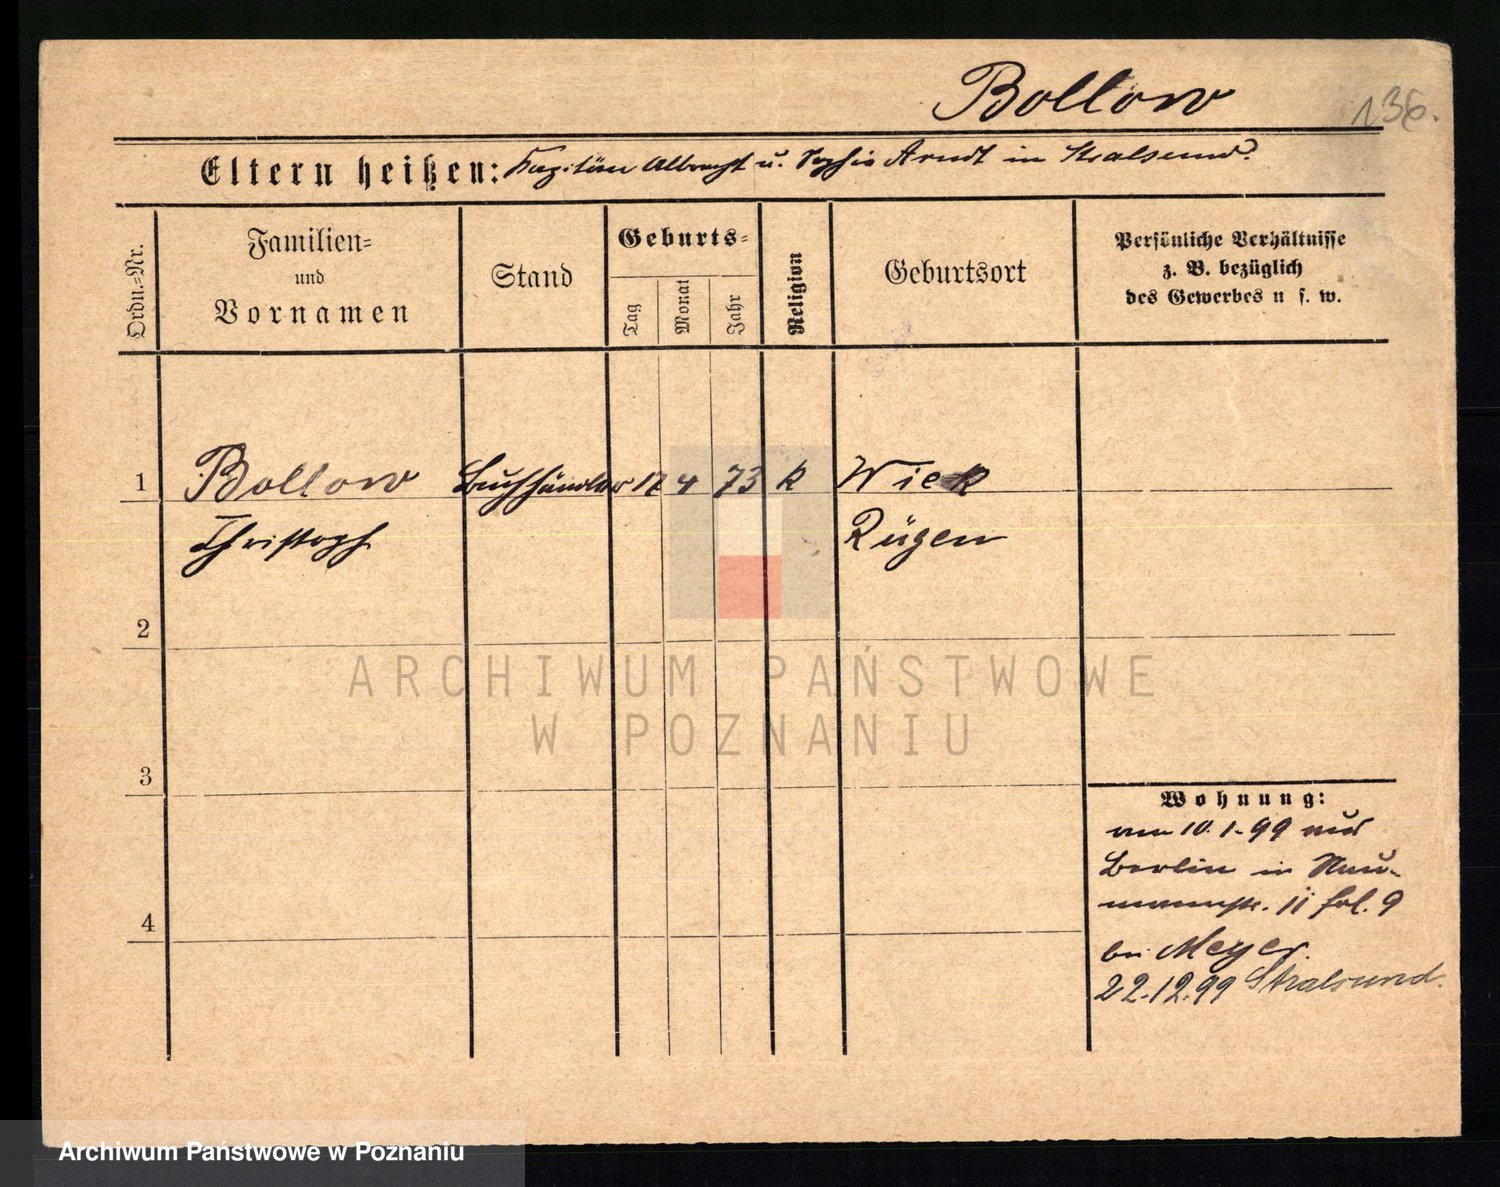 Bollow
136.
Eltern heißen: Kapitän Albrecht u. Sophie Arndt in Stralsund.
Ordn.-Nr.
Familien-
und
Vornamen
Stand
Geburts-
Tag
Monat
Jahr
Religion
Geburtsort
Persönliche Verhältnisse
z. B. bezüglich
des Gewerbes u s. w.
1 Bollow Buchhändler 12 4 73 k Wiek
Christoph Rügen
2
3
4
Wohnung:
am 10.1.99 aus
Berlin in Nau-
mannstr. 11 bei
bei Meyer.
22.12.99 Stralsund.
ARCHIWUM PAŃSTWOWE
W POZNANIU
Archiwum Państwowe w Poznaniu